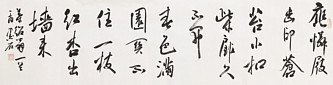 應憐屐
齒印蒼
苔小扣
柴扉久
不开
春色滿
園关不
住一枝
红杏出
墙来